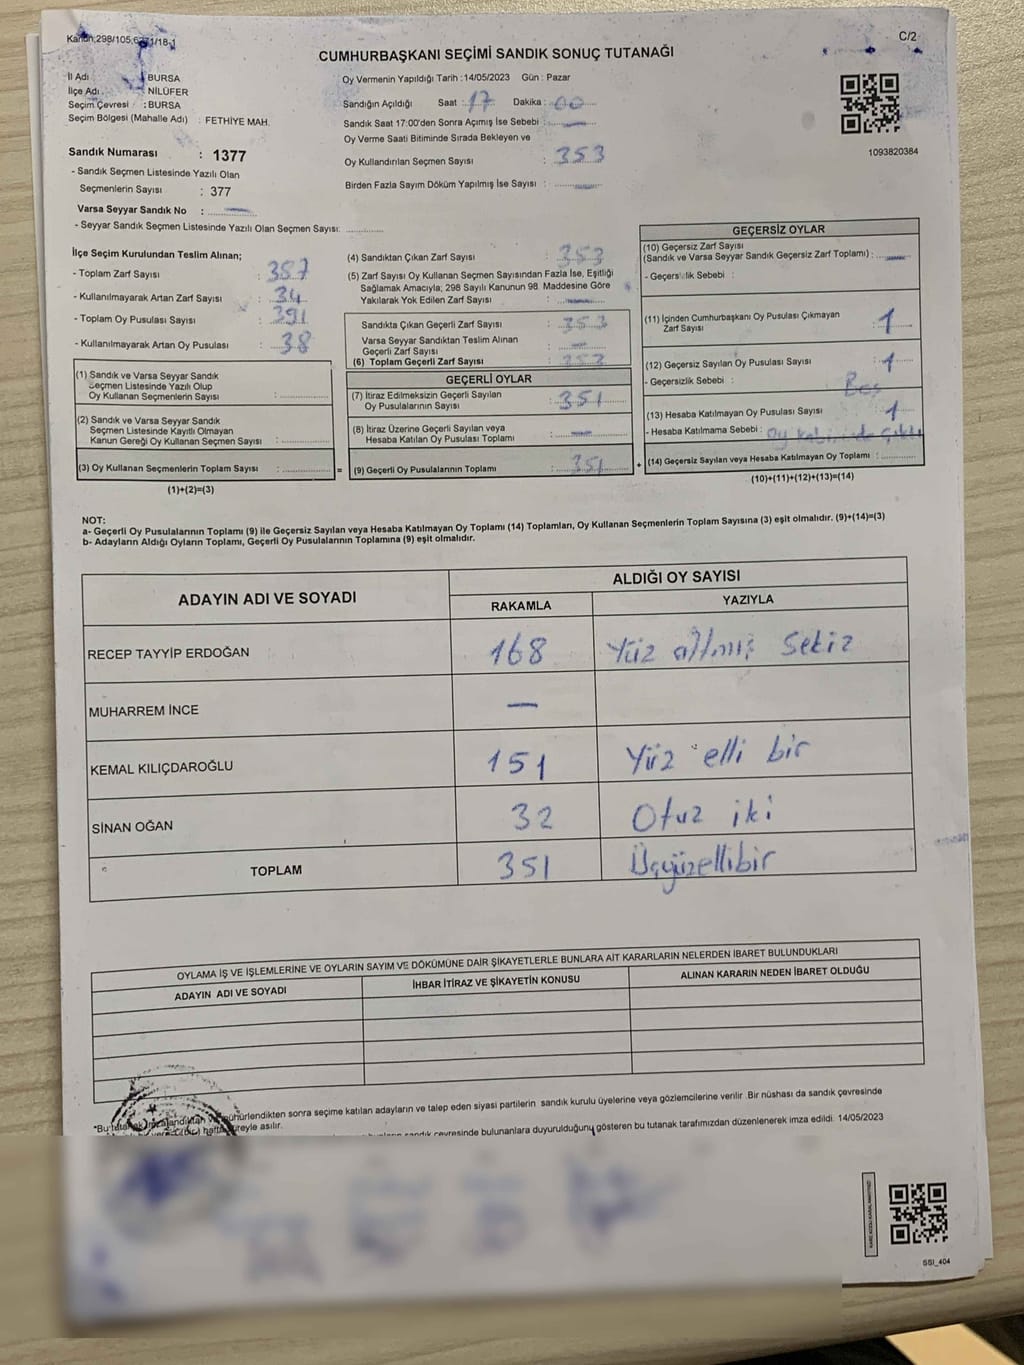 C/2
CUMHURBAŞKANI SEÇİMİ SANDIK SONUÇ TUTANAĞI
İl Adı : BURSA
İlçe Adı : NİLÜFER
Seçim Çevresi : BURSA
Seçim Bölgesi (Mahalle Adı) : FETHİYE MAH.
Sandık Numarası : 1377
- Sandık Seçmen Listesinde Yazılı Olan
Seçmenlerin Sayısı : 377
Varsa Seyyar Sandık No : —
- Seyyar Sandık Seçmen Listesinde Yazılı Olan Seçmen Sayısı:
Oy Vermenin Yapıldığı Tarih :14/05/2023 Gün : Pazar
Sandığın Açıldığı Saat : 17 Dakika : 00
Sandık Saat 17:00'den Sonra Açımış İse Sebebi : —
Oy Verme Saati Bitiminde Sırada Bekleyen ve
Oy Kullandırılan Seçmen Sayısı : 353
Birden Fazla Sayım Döküm Yapılmış İse Sayısı : —
1093820384
İlçe Seçim Kurulundan Teslim Alınan;
- Toplam Zarf Sayısı : 357
- Kullanılmayarak Artan Zarf Sayısı : 34
- Toplam Oy Pusulası Sayısı : 391
- Kullanılmayarak Artan Oy Pusulası : 38
(1) Sandık ve Varsa Seyyar Sandık
Seçmen Listesinde Yazılı Olup
Oy Kullanan Seçmenlerin Sayısı :
(2) Sandık ve Varsa Seyyar Sandık
Seçmen Listesinde Kayıtlı Olmayan
Kanun Gereği Oy Kullanan Seçmen Sayısı :
(3) Oy Kullanan Seçmenlerin Toplam Sayısı : =
(1)+(2)=(3)
(4) Sandıktan Çıkan Zarf Sayısı : 353
(5) Zarf Sayısı Oy Kullanan Seçmen Sayısından Fazla İse, Eşitliği
Sağlamak Amacıyla; 298 Sayılı Kanunun 98. Maddesine Göre
Yakılarak Yok Edilen Zarf Sayısı : —
Sandıkta Çıkan Geçerli Zarf Sayısı : 353
Varsa Seyyar Sandıktan Teslim Alınan
Geçerli Zarf Sayısı : —
(6) Toplam Geçerli Zarf Sayısı : 353
GEÇERLİ OYLAR
(7) İtiraz Edilmeksizin Geçerli Sayılan
Oy Pusulalarının Sayısı : 351
(8) İtiraz Üzerine Geçerli Sayılan veya
Hesaba Katılan Oy Pusulası Toplamı : —
(9) Geçerli Oy Pusulalarının Toplamı : 351 +
GEÇERSİZ OYLAR
(10) Geçersiz Zarf Sayısı
(Sandık ve Varsa Seyyar Sandık Geçersiz Zarf Toplamı) : —
- Geçersizlik Sebebi :
(11) İçinden Cumhurbaşkanı Oy Pusulası Çıkmayan
Zarf Sayısı : 1
(12) Geçersiz Sayılan Oy Pusulası Sayısı : 1
- Geçersizlik Sebebi : Boş
(13) Hesaba Katılmayan Oy Pusulası Sayısı : 1
- Hesaba Katılmama Sebebi : oy kabininde çıktı
(14) Geçersiz Sayılan veya Hesaba Katılmayan Oy Toplamı :
(10)+(11)+(12)+(13)=(14)
NOT:
a- Geçerli Oy Pusulalarının Toplamı (9) ile Geçersiz Sayılan veya Hesaba Katılmayan Oy Toplamı (14) Toplamları, Oy Kullanan Seçmenlerin Toplam Sayısına (3) eşit olmalıdır. (9)+(14)=(3)
b- Adayların Aldığı Oyların Toplamı, Geçerli Oy Pusulalarının Toplamına (9) eşit olmalıdır.
ADAYIN ADI VE SOYADI
ALDIĞI OY SAYISI
RAKAMLA YAZIYLA
RECEP TAYYİP ERDOĞAN 168 Yüz altmış sekiz
MUHARREM İNCE —
KEMAL KILIÇDAROĞLU 151 Yüz elli bir
SİNAN OĞAN 32 Otuz iki
TOPLAM 351 Üçyüzellibir
OYLAMA İŞ VE İŞLEMLERİNE VE OYLARIN SAYIM VE DÖKÜMÜNE DAİR ŞİKAYETLERLE BUNLARA AİT KARARLARIN NELERDEN İBARET BULUNDUKLARI
ADAYIN ADI VE SOYADI İHBAR İTİRAZ VE ŞİKAYETİN KONUSU ALINAN KARARIN NEDEN İBARET OLDUĞU
*Bu tutanak mühürlendikten sonra seçime katılan adayların ve talep eden siyasi partilerin sandık kurulu üyelerine veya gözlemcilerine verilir. Bir nüshası da sandık çevresinde
hafta süreyle asılır.
sandık çevresinde bulunanlara duyurulduğunu gösteren bu tutanak tarafımızdan düzenlenerek imza edildi. 14/05/2023
SSI_404